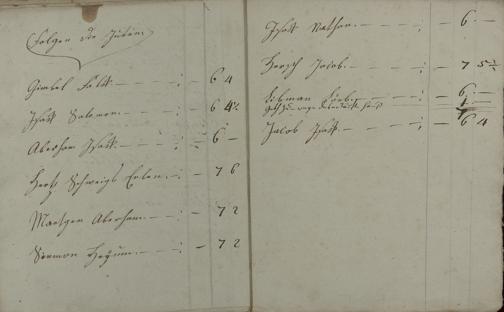 Folgen die Juden
Gimbel Feist — : — 6 4
Isaac Salomon — : — 6 4½
Abraham Isaac — : — 6 —
Hertz Schweigs Erben — : — 7 6
Maetgen Abraham — : — 7 2
Seemon Heyum — : — 7 2
Isaac Nathan — : — 6 —
Hersch Jacob — : — 7 5½
Libman Löeb — : — 6 —
Jacob Isaac — : — 6 4